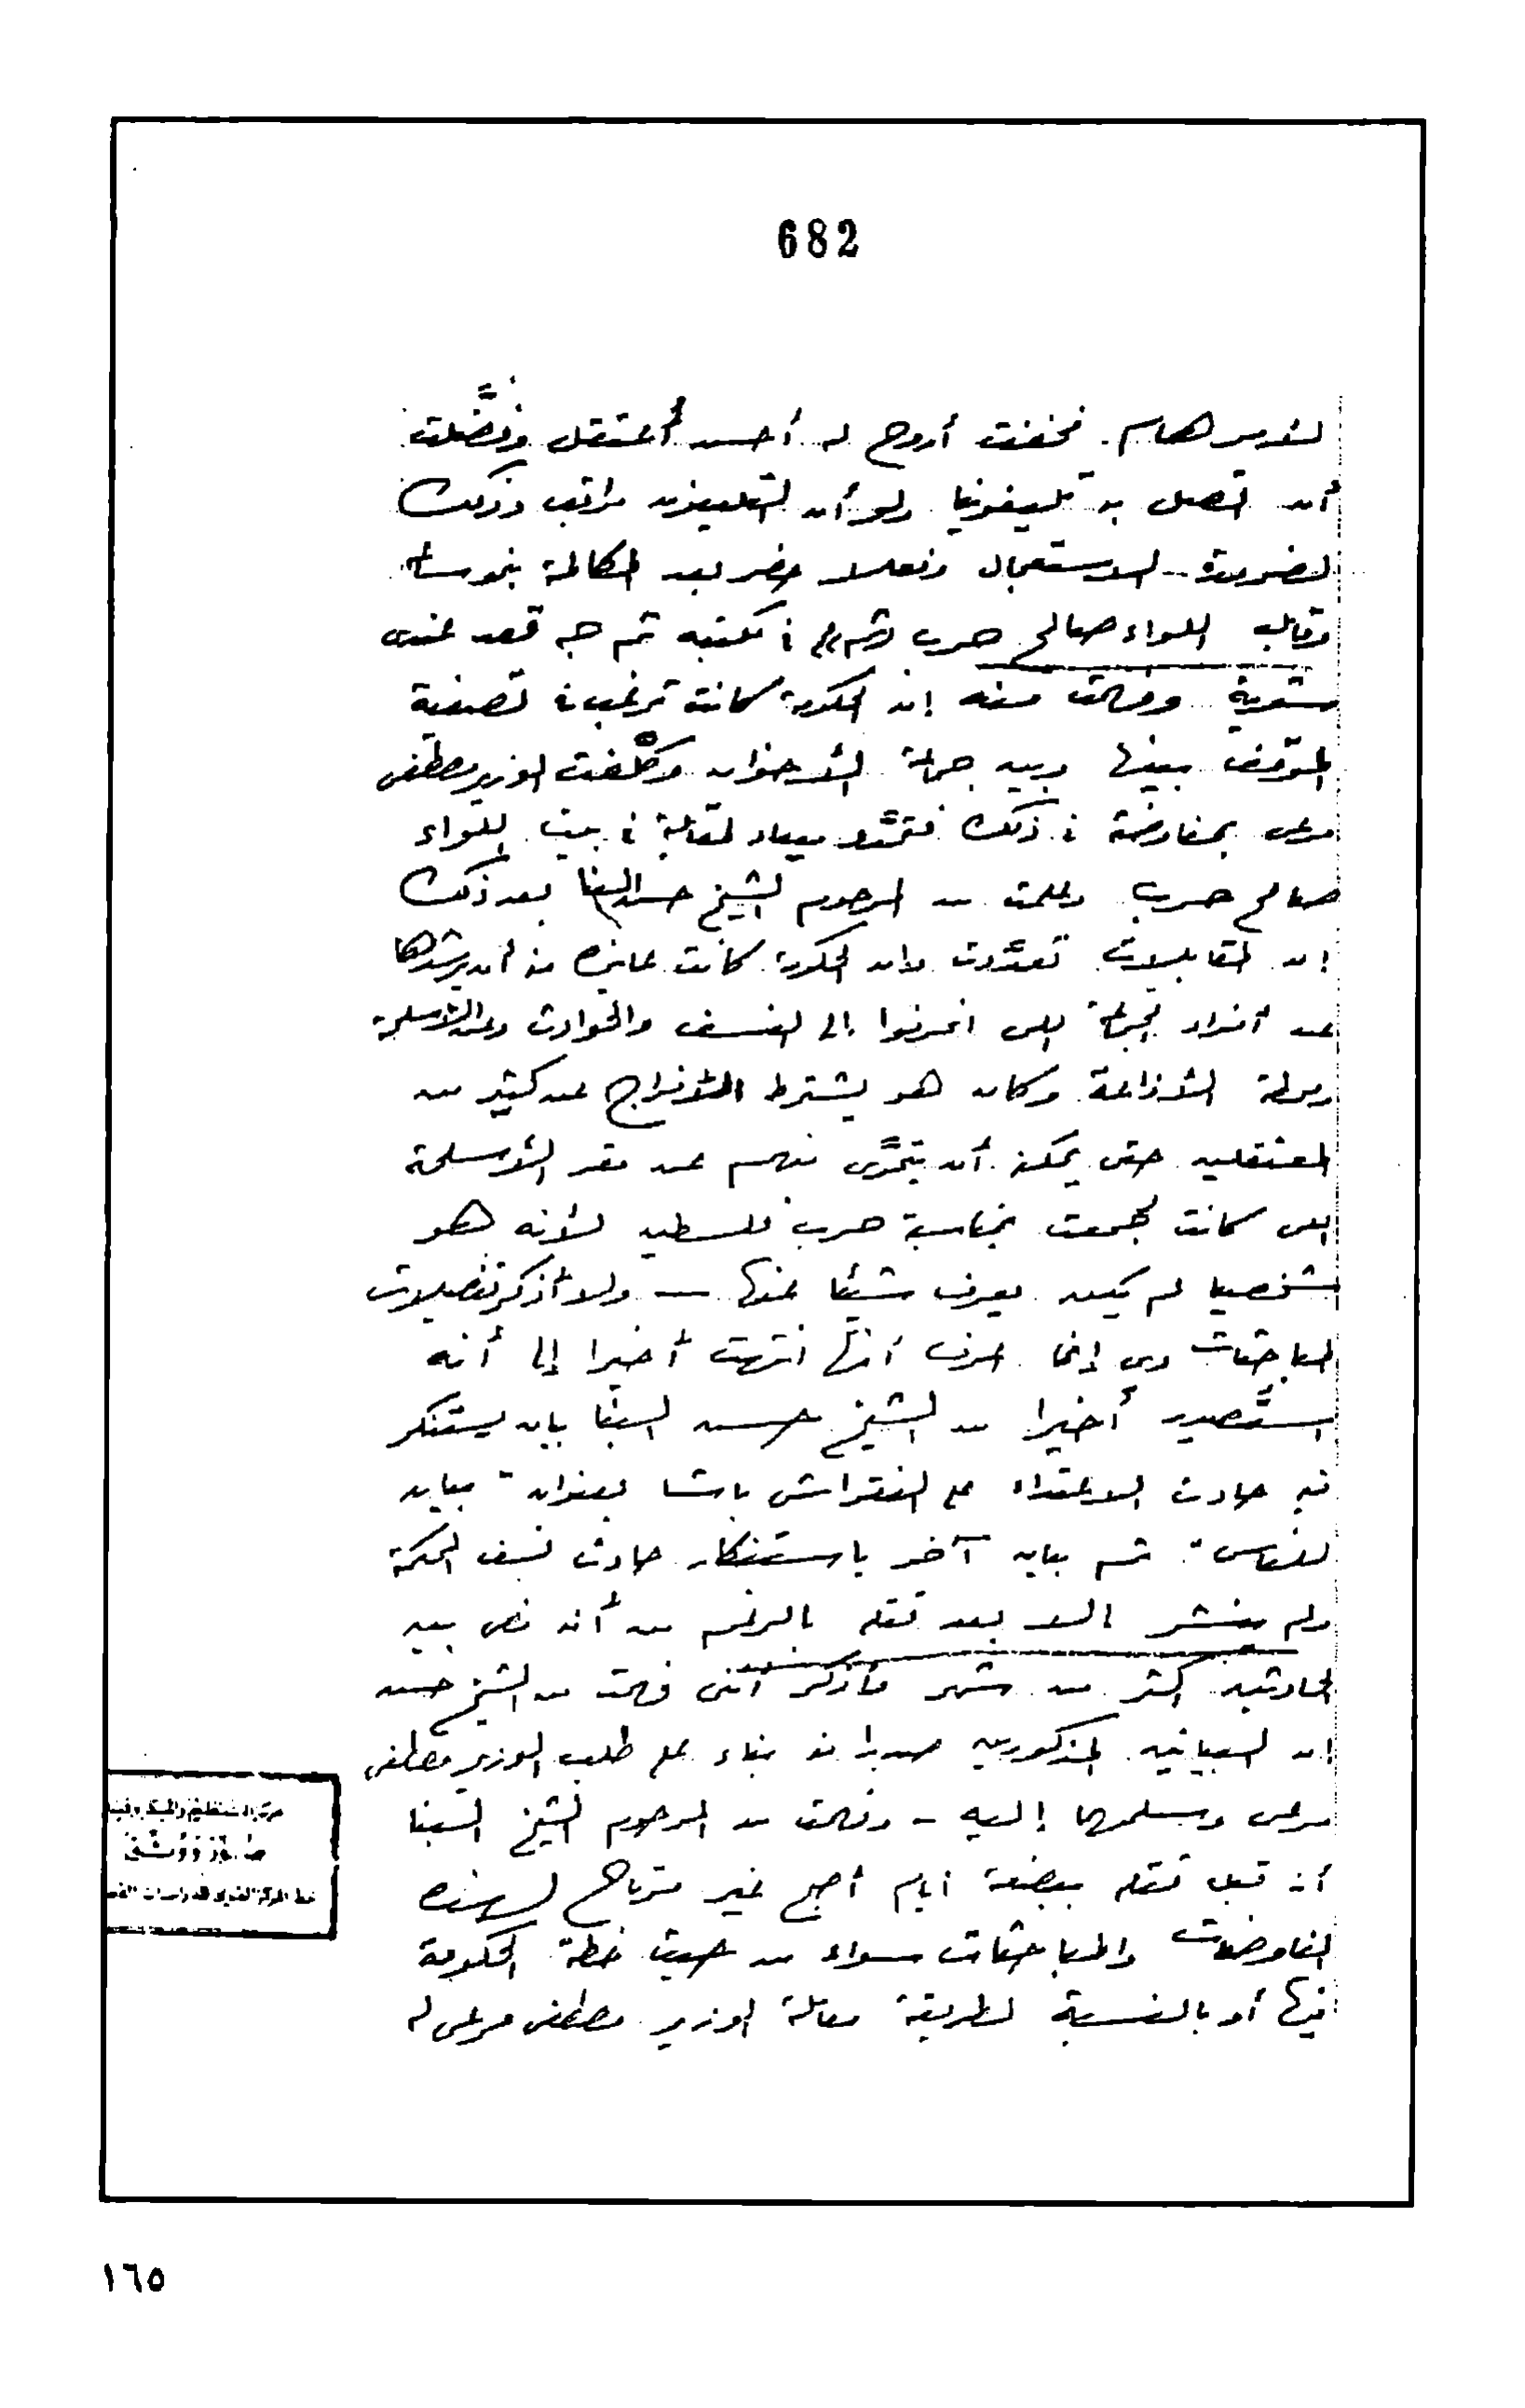 682
لأمر هام. فخفت أروح له أحسن أُعتقل وفضَّلت
أن اتصل به تليفونيا ولو أن التليفون مراقب وذلك
لضرورة الاستعجال وفعلا حضر بعد المكالمة بنحو ساعة
وقابل اللواء صالح حرب في مكتبه ثم جه قعد عندى
شوية وفهمت منه إن الحكومة كانت ترغب في تصفية
الموقف بينها وبين جماعة الأخوان وكلَّفت الوزير مصطفى
مرعى بمفاوضة في ذلك فتحدَّد ميعاد لمقابلة في بيت اللواء
صالح حرب وعلمت من المرحوم الشيخ حسن البنا بعد ذلك
إن المقابلات تعدَّدت وان الحكومة كانت عايزه منه أن يرشدها
عن أفراد الجماعة اللى انحرفوا إلى النسف والحوادث وعن الأسلحة
ومحطة الأذاعة وكان هو يشترط الأفراج عن كثير من
المعتقلين حتى يمكنه أن يتحرَّى منهم عن مقر الأسلحة
اللى كانت تجمعت بمناسبة حرب فلسطين لأنه هو
شخصيا لم يكن يعرف شيئا عنها — ولا أذكر تفصيلات
المباحثات دى إنما اعرف أنها انتهت أخيرا إلى أنه
استُصدر أخيرا من الشيخ حسن البنا بيان يستنكر
فيه حادث الاعتداء على النقراشى باشا بعنوان " بيان
للناس " ثم بيان آخر باستنكار حادث نسف المحكمة
ولم ينشر إلا بعد قتله بالرغم من أنه مضى بين
الحادثين أكثر من شهر فأذكر أننى فهمت من الشيخ حسن
ان البيانين المذكورين صدرا منه بناء على طلب الوزير مصطفى
مرعى وسلمهما إليه - وفهمت من المرحوم الشيخ البنا
أنه قبل قتله ببضعة أيام أصبح غير مرتاح لهذه
المفاوضات والمباحثات سواء من حيث خطة الحكومة
فيها أو بالنسبة لطريقة معاملة الوزير مصطفى مرعى له
١٦٥